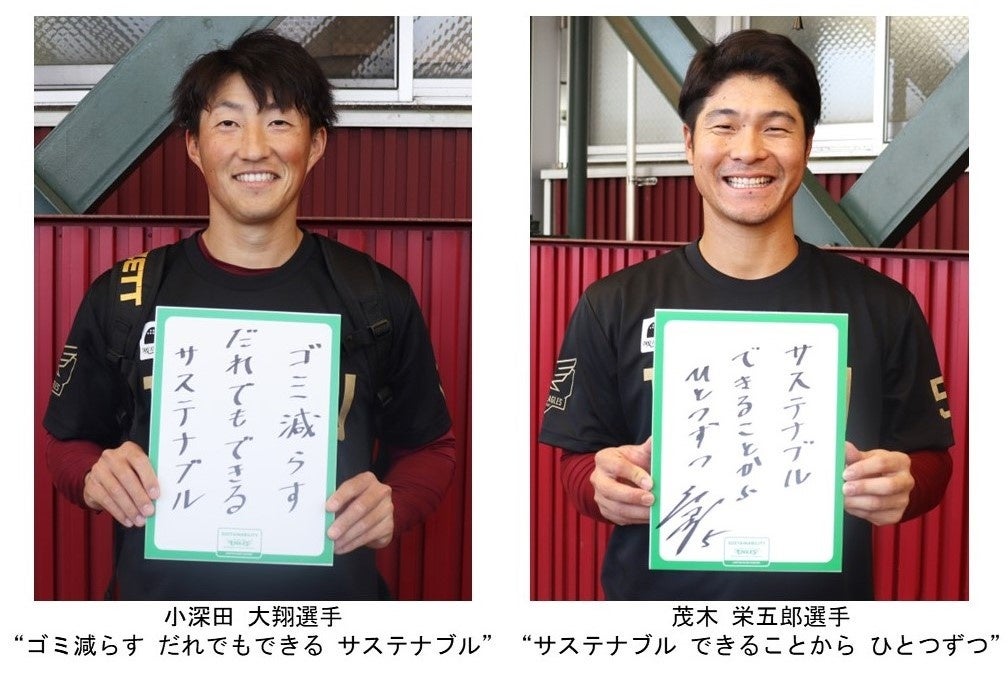 ETT
ゴミ減らす
だれでもできる
サステナブル
SUSTAINABILITY
EAGLES
サステナブル
できることから
ひとつずつ
5
SUSTAINABILITY
EAGLES
小深田 大翔選手
“ゴミ減らす だれでもできる サステナブル”
茂木 栄五郎選手
“サステナブル できることから ひとつずつ”